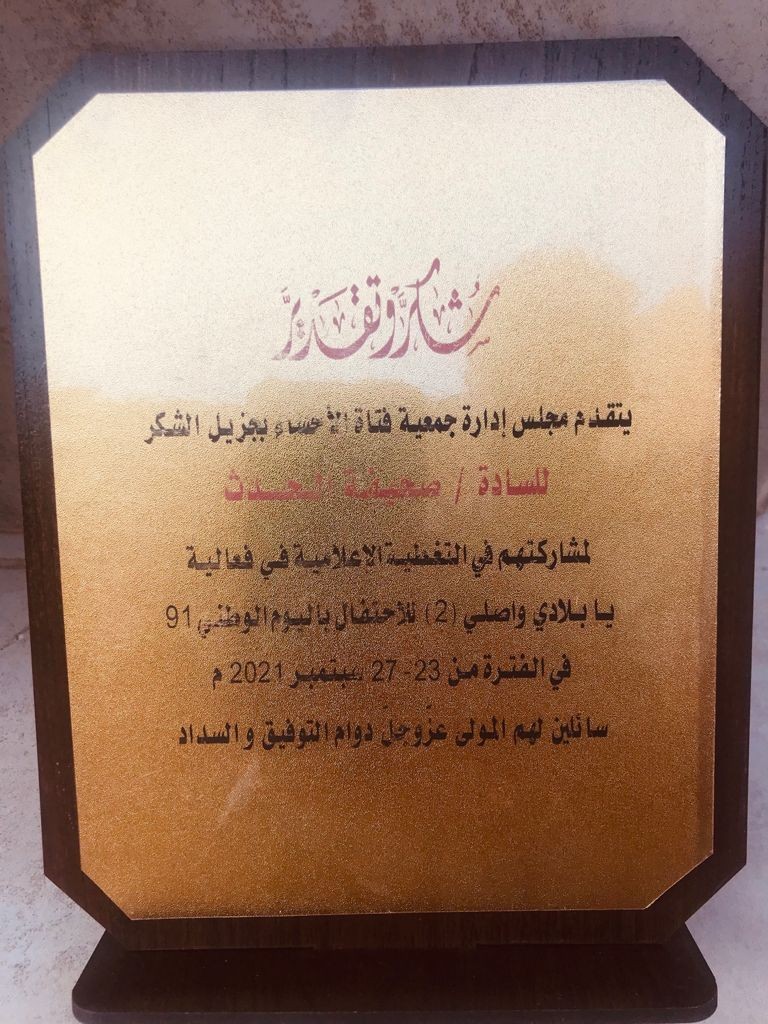 شكر وتقدير
يتقدم مجلس إدارة جمعية فتاة الأحساء بجزيل الشكر
للسادة / صحيفة الحدث
لمشاركتهم في التغطية الاعلامية في فعالية
يا بلادي واصلي (2) للأحتفال باليوم الوطني 91
في الفترة من 23 - 27 سبتمبر 2021 م
سائلين لهم المولى عزوجل دوام التوفيق و السداد